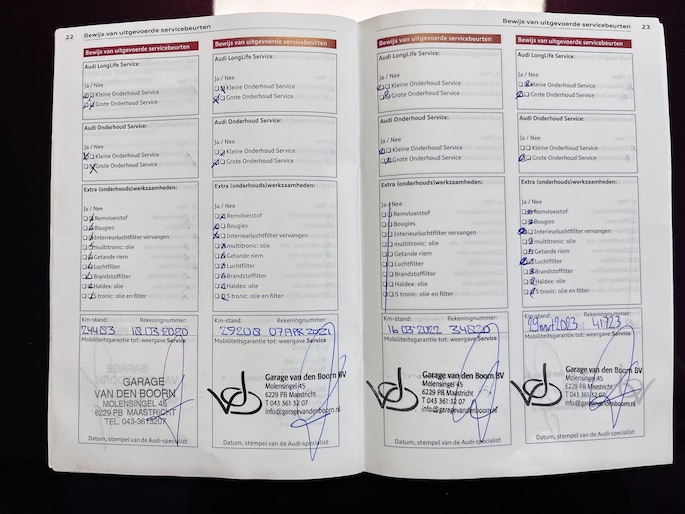 22 Bewijs van uitgevoerde servicebeurten
Bewijs van uitgevoerde servicebeurten
Audi LongLife Service:
Ja / Nee
Kleine Onderhoud Service
Grote Onderhoud Service
Audi Onderhoud Service:
Kleine Onderhoud Service
Grote Onderhoud Service
Extra (onderhouds)werkzaamheden:
Ja / Nee
Remvloeistof
Bougies
Interieurluchtfilter vervangen
multitronic: olie
Getande riem
Luchtfilter
Brandstoffilter
Haldex: olie
S tronic: olie en filter
Km-stand: Rekeningnummer:
24483 18 03 2020
Mobiliteitsgarantie tot: weergave Service
GARAGE
VAN DEN BOORN
MOLENSINGEL 45
6229 PB MAASTRICHT
TEL. 043-3613207
Datum, stempel van de Audi-specialist
Bewijs van uitgevoerde servicebeurten
Audi LongLife Service:
Ja / Nee
Kleine Onderhoud Service
Grote Onderhoud Service
Audi Onderhoud Service:
Kleine Onderhoud Service
Grote Onderhoud Service
Extra (onderhouds)werkzaamheden:
Ja / Nee
Remvloeistof
Bougies
Interieurluchtfilter vervangen
multitronic: olie
Getande riem
Luchtfilter
Brandstoffilter
Haldex: olie
S tronic: olie en filter
Km-stand: Rekeningnummer:
29208 07 APR 2021
Mobiliteitsgarantie tot: weergave Service
vdb
Garage van den Boorn BV
Molensingel 45
6229 PB Maastricht
T 043 361 32 07
info@garagevandenboorn.nl
Datum, stempel van de Audi-specialist
Bewijs van uitgevoerde servicebeurten 23
Bewijs van uitgevoerde servicebeurten
Audi LongLife Service:
Ja / Nee
Kleine Onderhoud Service
Grote Onderhoud Service
Audi Onderhoud Service:
Kleine Onderhoud Service
Grote Onderhoud Service
Extra (onderhouds)werkzaamheden:
Ja / Nee
Remvloeistof
Bougies
Interieurluchtfilter vervangen
multitronic: olie
Getande riem
Luchtfilter
Brandstoffilter
Haldex: olie
S tronic: olie en filter
Km-stand: Rekeningnummer:
16 03 2022 34820
Mobiliteitsgarantie tot: weergave Service
vdb
Garage van den Boorn BV
Molensingel 45
6229 PB Maastricht
T 043 361 32 07
info@garagevandenboorn.nl
Datum, stempel van de Audi-specialist
Bewijs van uitgevoerde servicebeurten
Audi LongLife Service:
Ja / Nee
Kleine Onderhoud Service
Grote Onderhoud Service
Audi Onderhoud Service:
Kleine Onderhoud Service
Grote Onderhoud Service
Extra (onderhouds)werkzaamheden:
Ja / Nee
Remvloeistof
Bougies
Interieurluchtfilter vervangen
multitronic: olie
Getande riem
Luchtfilter
Brandstoffilter
Haldex: olie
S tronic: olie en filter
Km-stand: Rekeningnummer:
29 mrt 2023 41723
Mobiliteitsgarantie tot: weergave Service
vdb
Garage van den Boorn BV
Molensingel 45
6229 PB Maastricht
T 043 361 32 07
info@garagevandenboorn.nl
Datum, stempel van de Audi-specialist